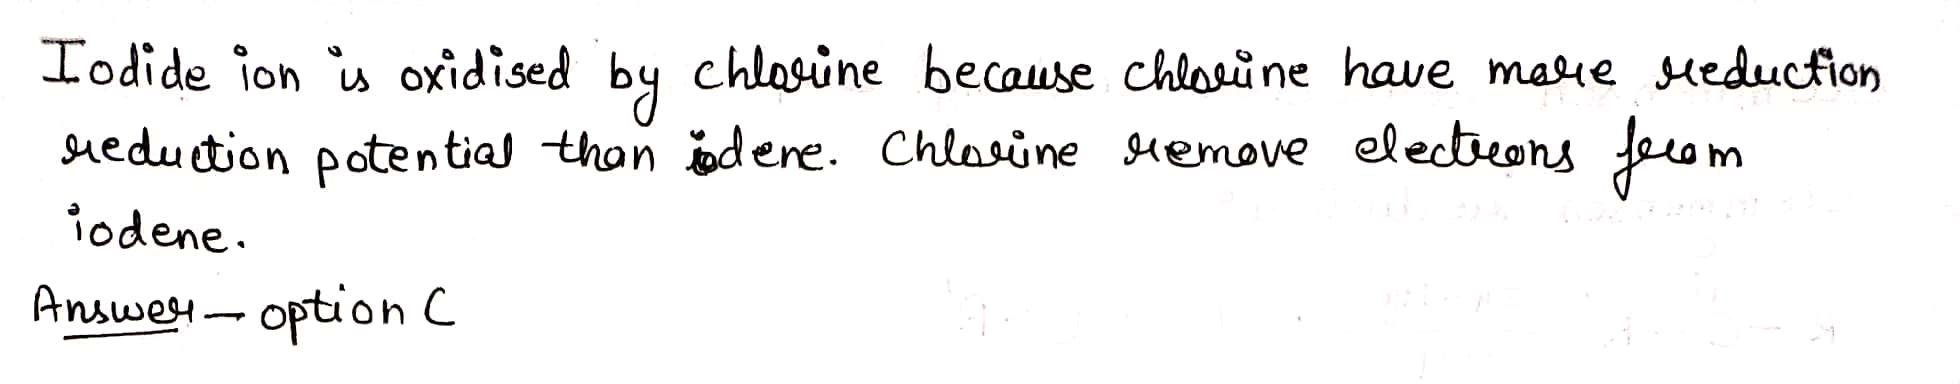 Iodide ion is oxidised by chlorine because chlorine have more reduction
reduction potential than iodene. Chlorine remove electrons from
iodene.
Answer - option C